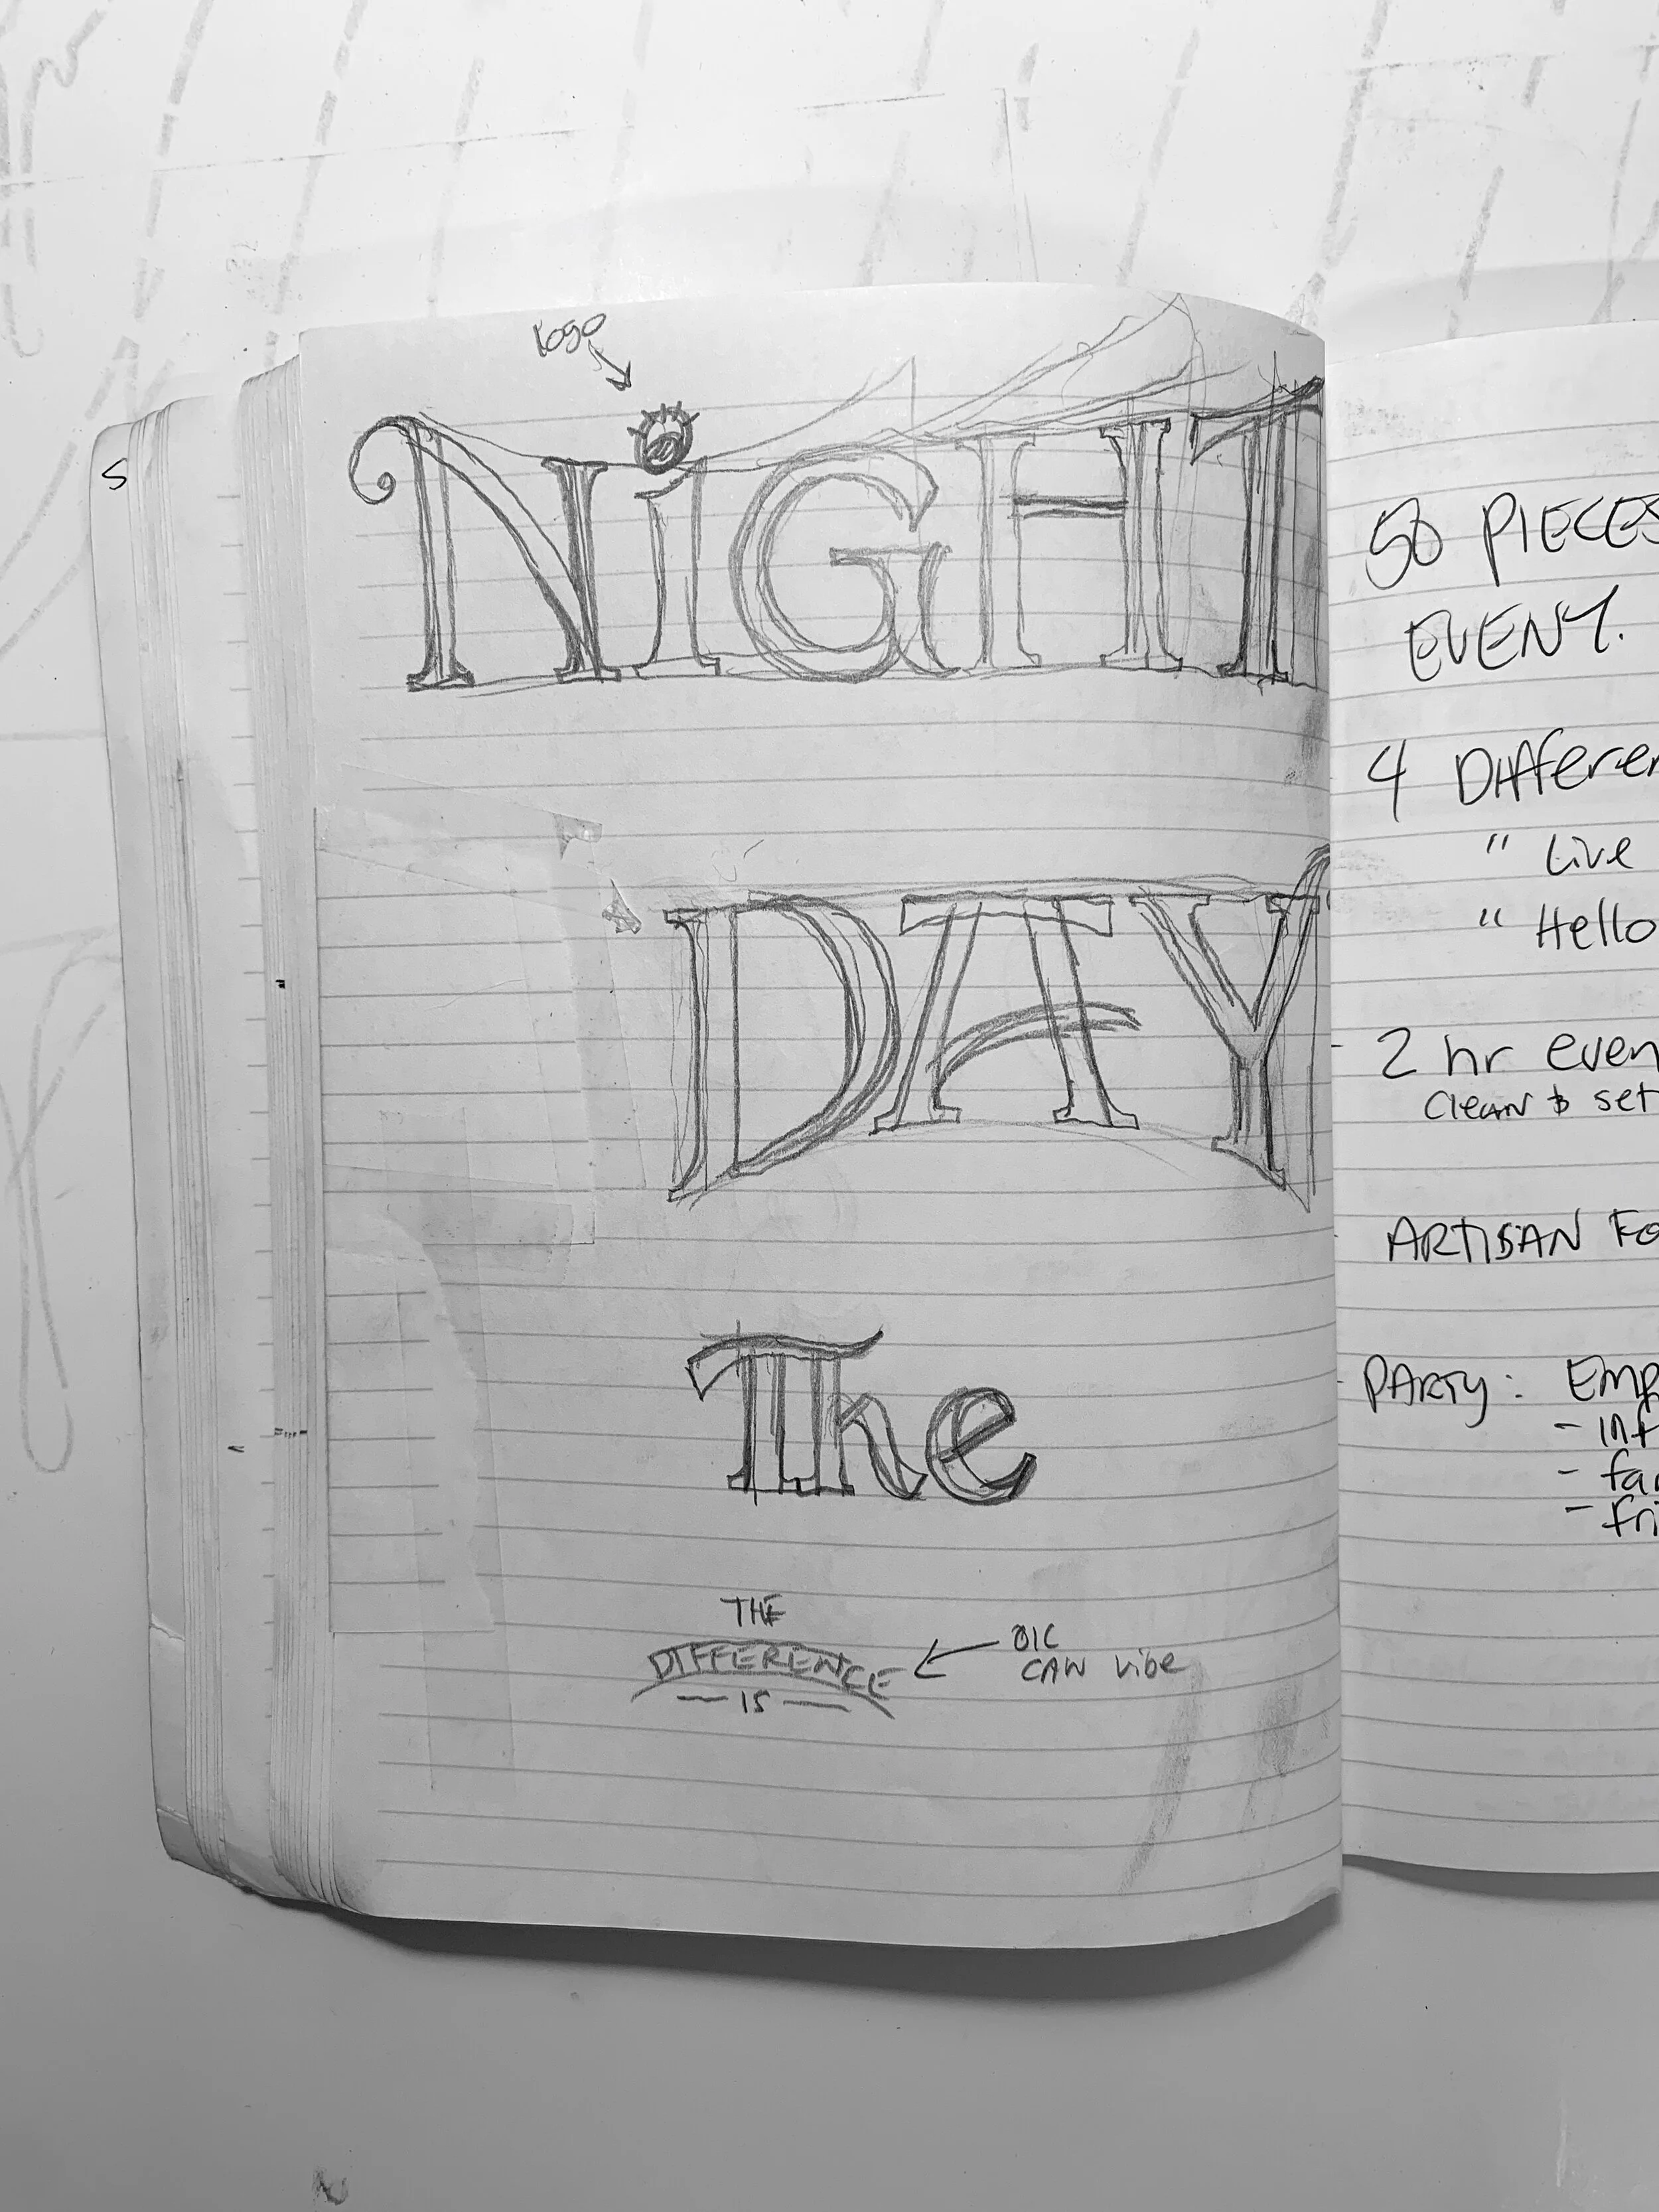 logo
NiGHT
DAY
The
THE
DIFFERENCE
— IS —
CAN vibe
S
50 PIECES
EVENT.
4 Differen
" Live
" Hello
2 hr even
Clean & set
ARTISAN FO
PARTY: EMP
- inf
- fa
- fri